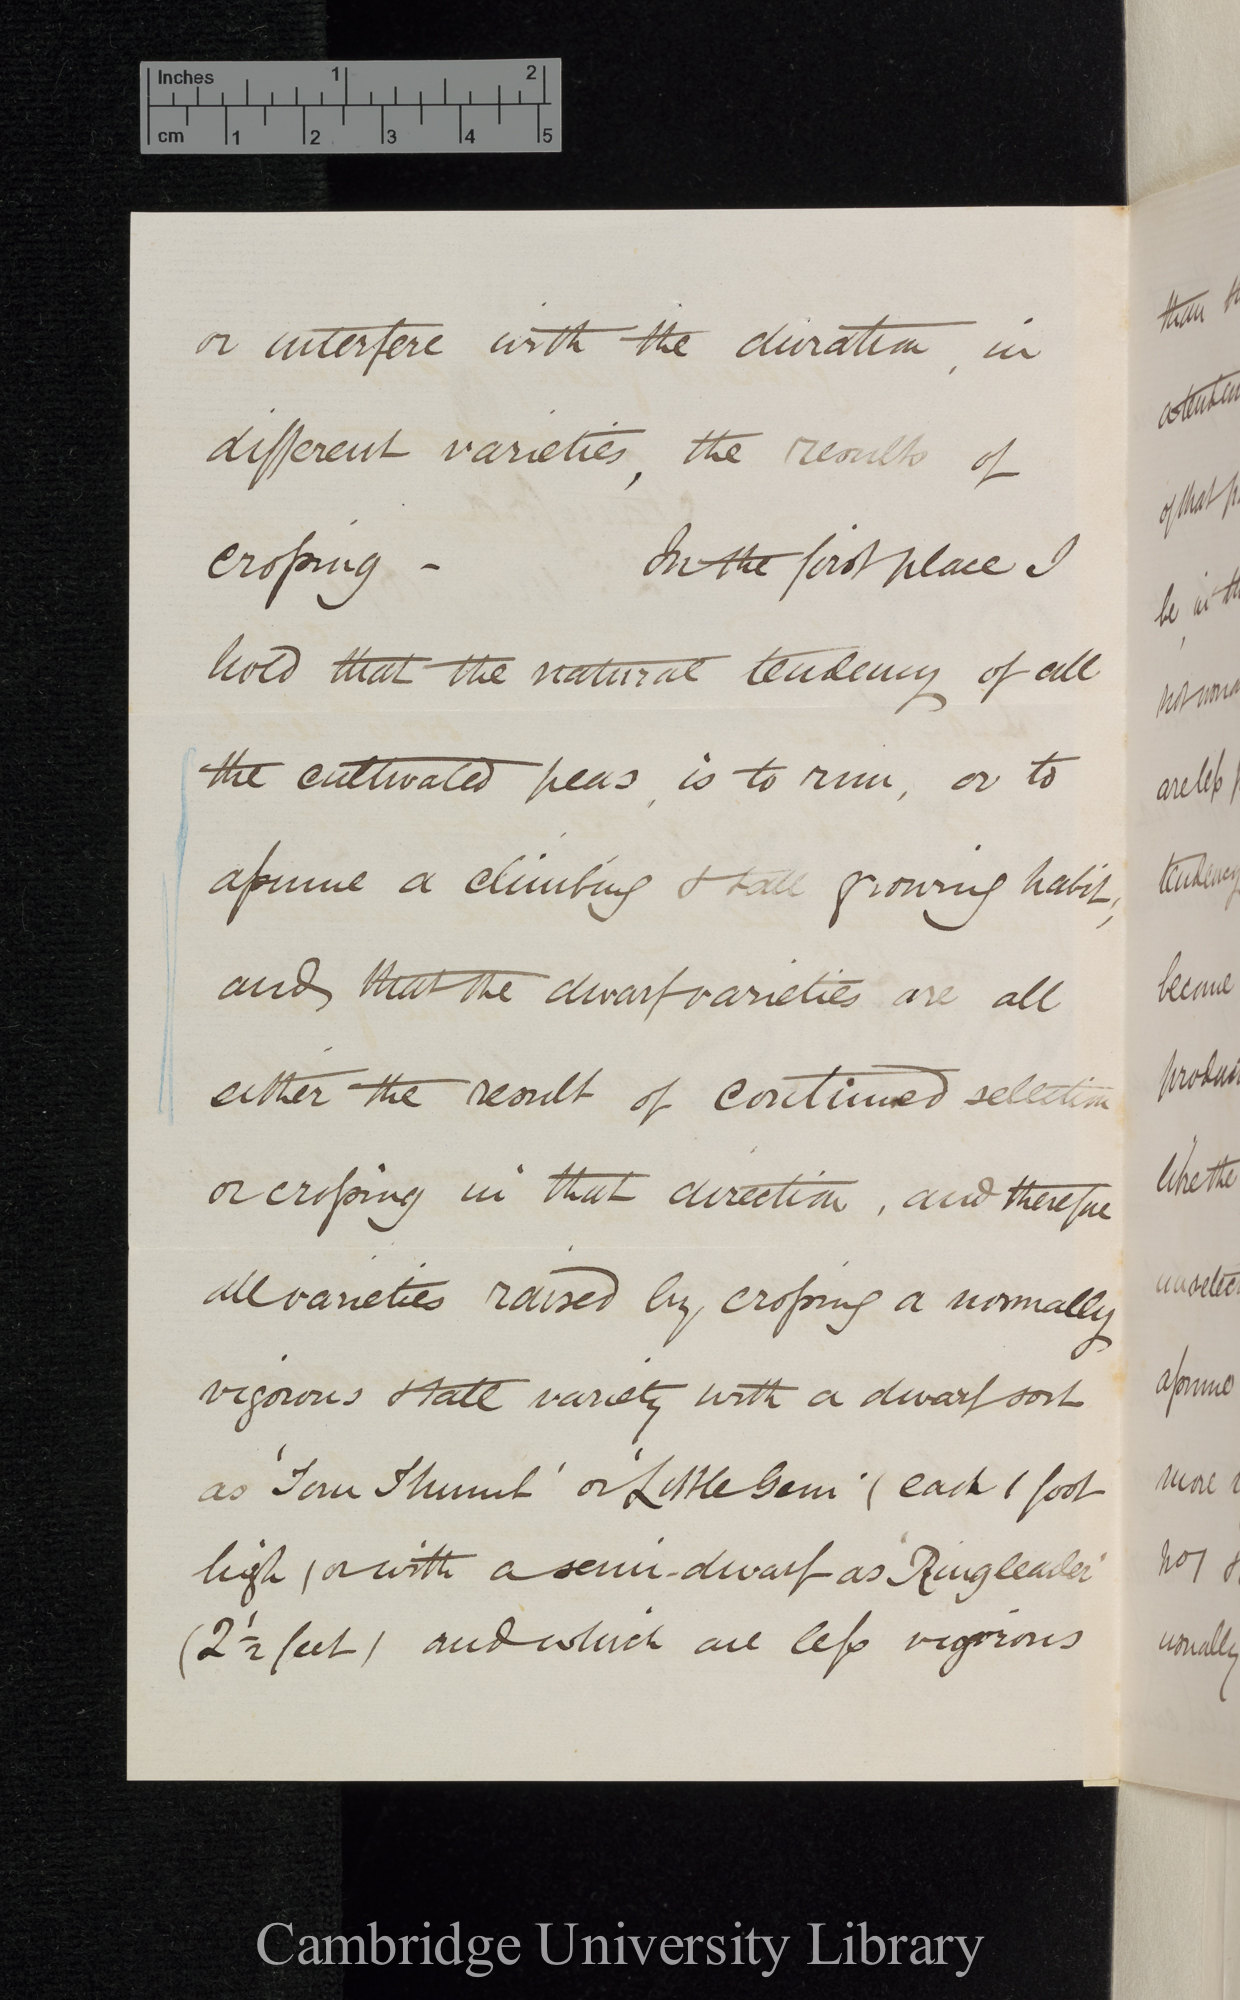 Inches 1 2
cm 1 2 3 4 5
or interfere with the duration, in
different varieties, the results of
crossing - In the first place I
hold that the natural tendency of all
the cultivated peas, is to run, or to
assume a climbing & tall growing habit;
and, that the dwarf varieties are all
either the result of continued selection
or crossing in that direction, and therefore
all varieties raised by crossing a normally
vigorous & tall variety with a dwarf sort
as 'Tom Thumb' or 'Little Gem' (each 1 foot
high) or with a semi-dwarf as 'Ringleader'
(2½ feet) and which are less vigorous
than
of that
be, in
are less
tendency
become
like the
assume
more
usually
Cambridge University Library